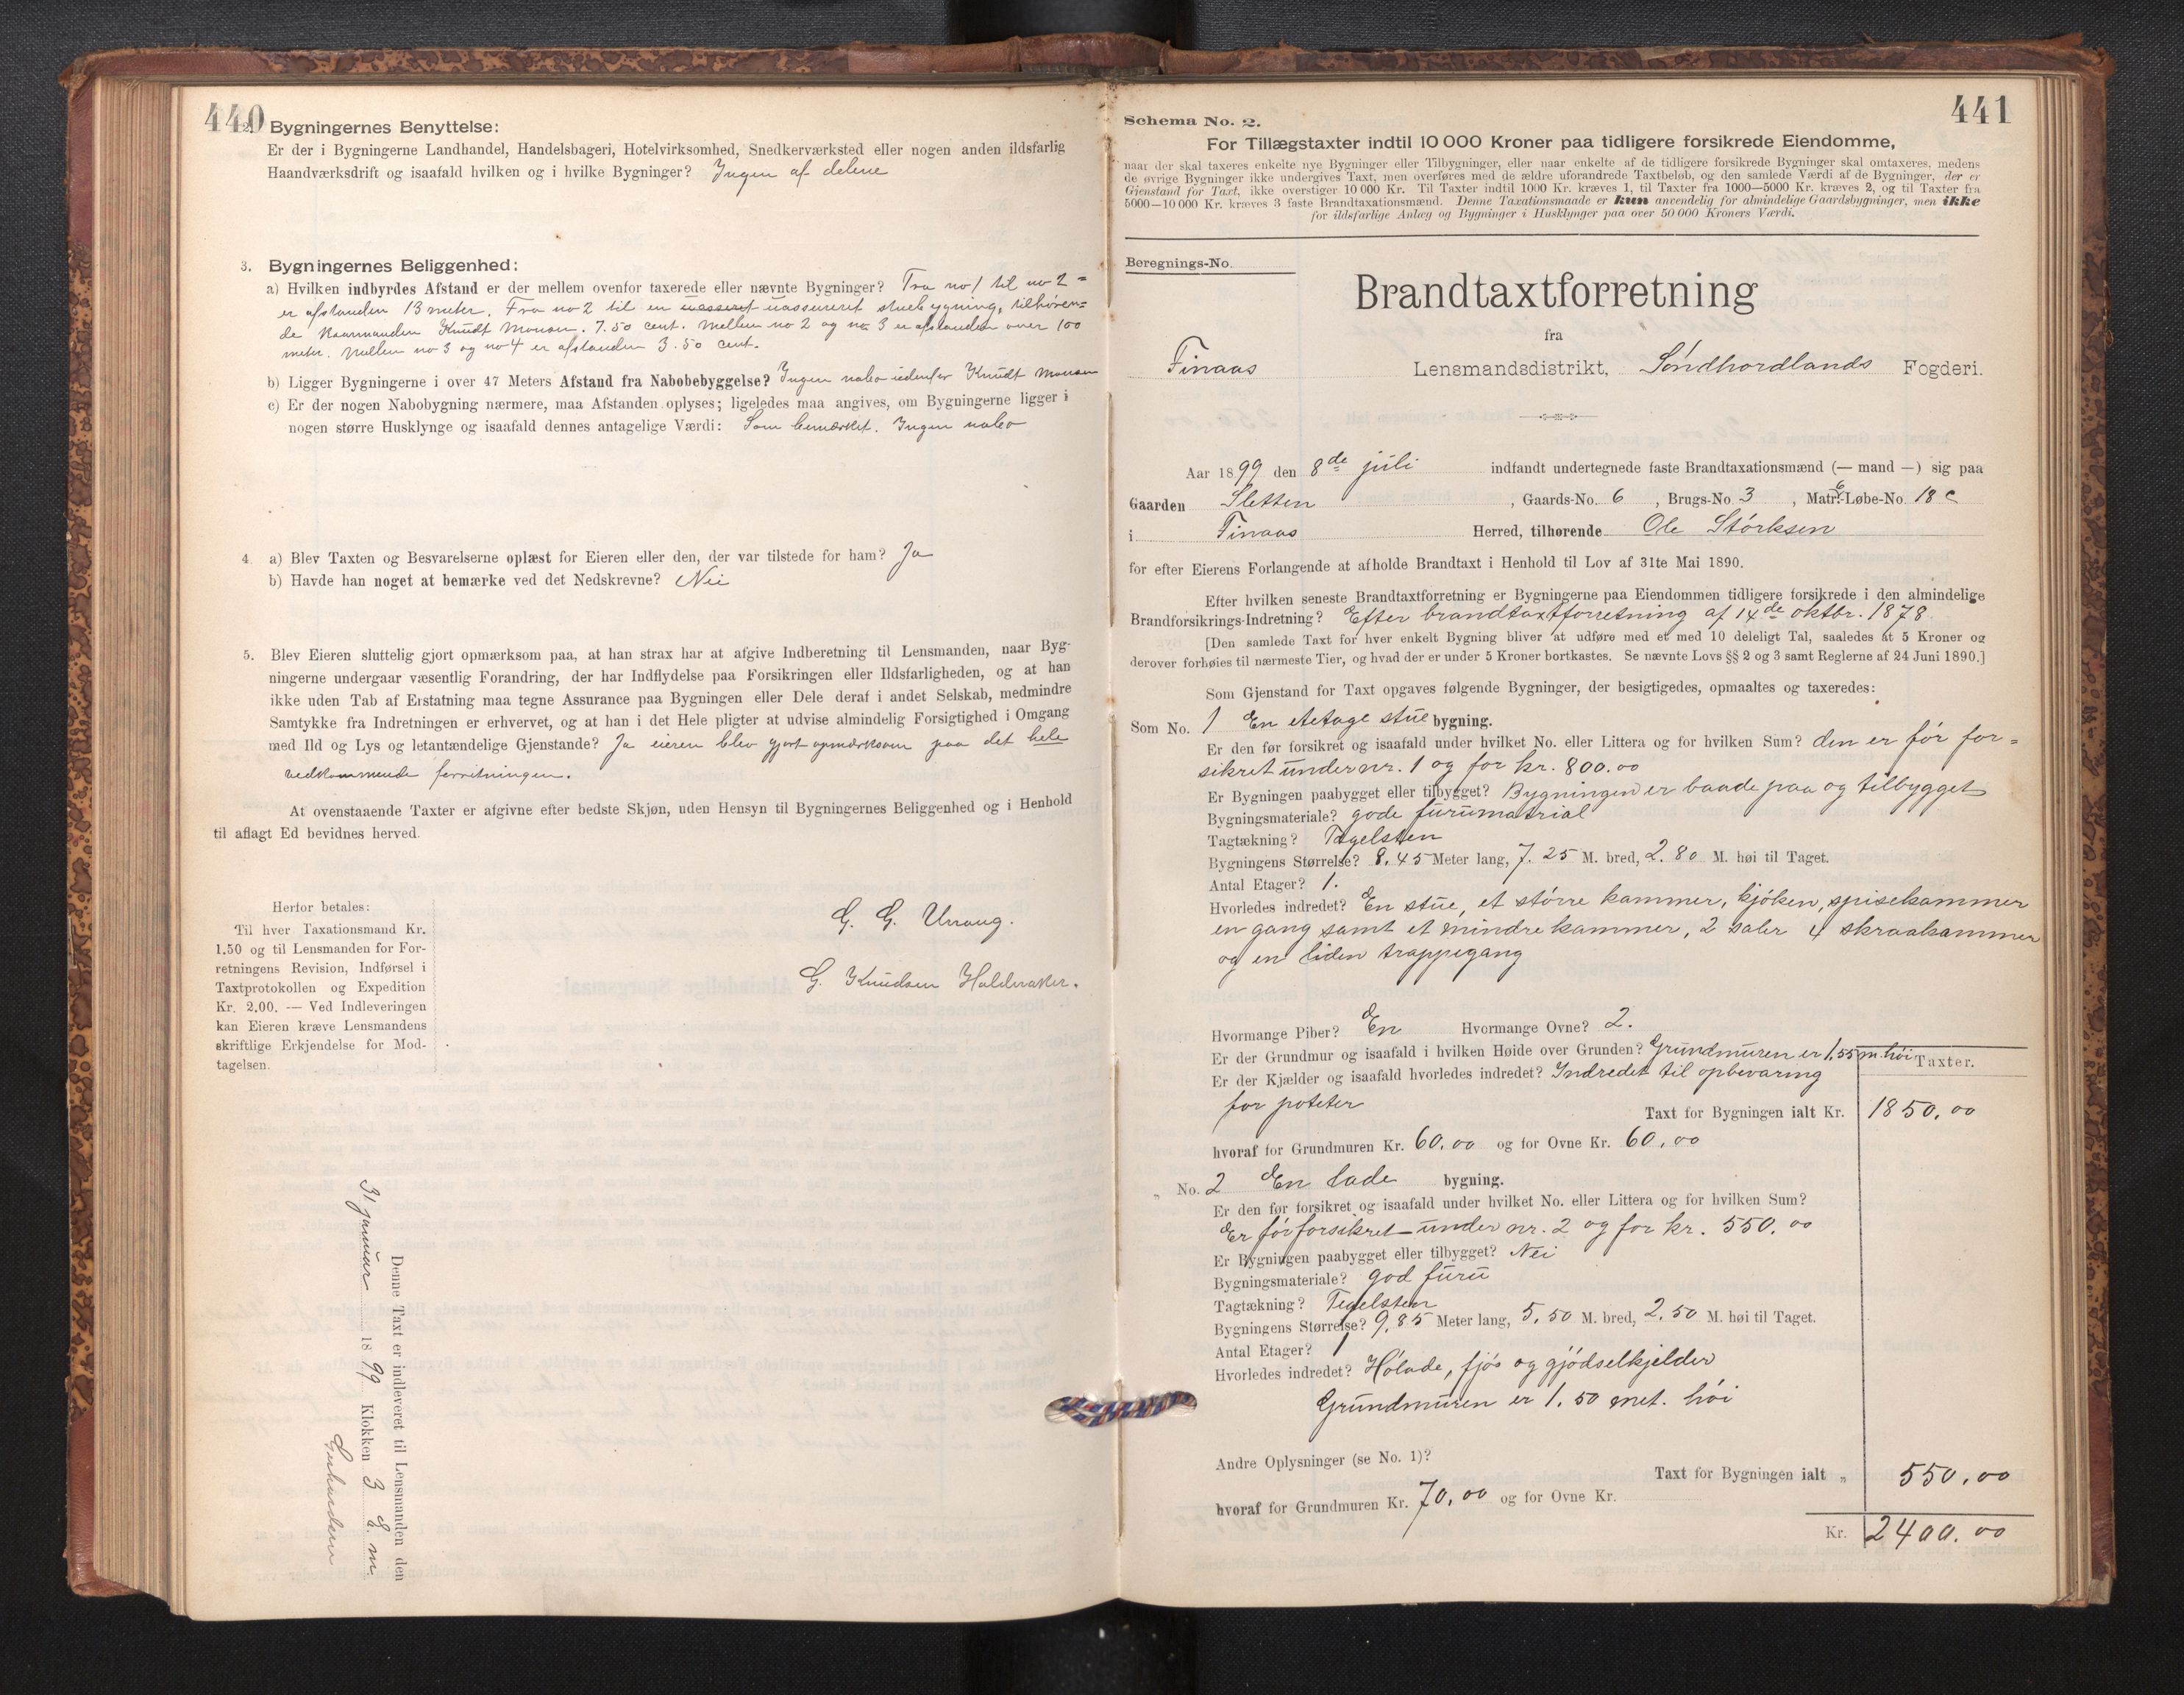 440
2. Bygningernes Benyttelse:
Er der i Bygningerne Landhandel, Handelsbageri, Hotelvirksomhed, Snedkerværksted eller nogen anden ildsfarlig
Haandværksdrift og isaafald hvilken og i hvilke Bygninger? Ingen af delene
3. Bygningernes Beliggenhed:
a) Hvilken indbyrdes Afstand er der mellem ovenfor taxerede eller nævnte Bygninger? Fra no 1 til no 2 =
er afstanden 13 meter. Fra no 2 til en uasseret uassureret stuebygning, tilhøren=
de Kaarmanden Knudt Monsen. 7.50 cent. Mellem no 2 og no 3 er afstanden over 100
meter. Mellem no 3 og no 4 er afstanden 3.50 cent.
b) Ligger Bygningerne i over 47 Meters Afstand fra Nabobebyggelse? Ingen nabo udenfor Knudt Monsen
c) Er der nogen Nabobygning nærmere, maa Afstanden oplyses; ligeledes maa angives, om Bygningerne ligger i
nogen større Husklynge og isaafald dennes antagelige Værdi: Som bemærket. Ingen nabo
4. a) Blev Taxten og Besvarelserne oplæst for Eieren eller den, der var tilstede for ham? Ja
b) Havde han noget at bemærke ved det Nedskrevne? Nei
5. Blev Eieren sluttelig gjort opmærksom paa, at han strax har at afgive Indberetning til Lensmanden, naar Byg-
ningerne undergaar væsentlig Forandring, der har Indflydelse paa Forsikringen eller Ildsfarligheden, og at han
ikke uden Tab af Erstatning maa tegne Assurance paa Bygningen eller Dele deraf i andet Selskab, medmindre
Samtykke fra Indretningen er erhvervet, og at han i det Hele pligter at udvise almindelig Forsigtighed i Omgang
med Ild og Lys og letantændelige Gjenstande? Ja eieren blev gjort opmærksom paa det hele
vedkommende forretningen.
At ovenstaaende Taxter er afgivne efter bedste Skjøn, uden Hensyn til Bygningernes Beliggenhed og i Henhold
til aflagt Ed bevidnes herved.
G. G. Urraug.
G. Knudsen Haldraker.
Herfor betales:
Til hver Taxationsmand Kr.
1.50 og til Lensmanden for For-
retningens Revision, Indførsel i
Taxtprotokollen og Expedition
Kr. 2.00. — Ved Indleveringen
kan Eieren kræve Lensmandens
skriftlige Erkjendelse for Mod-
tagelsen.
Denne Taxt er indleveret til Lensmanden den
31 januar 1899 Klokken 3 E. m.
441
Schema No. 2.
For Tillægstaxter indtil 10 000 Kroner paa tidligere forsikrede Eiendomme,
naar der skal taxeres enkelte nye Bygninger eller Tilbygninger, eller naar enkelte af de tidligere forsikrede Bygninger skal omtaxeres, medens
de øvrige Bygninger ikke undergives Taxt, men overføres med de ældre uforandrede Taxtbeløb, og den samlede Værdi af de Bygninger, der er
Gjenstand for Taxt, ikke overstiger 10 000 Kr. Til Taxter indtil 1000 Kr. kræves 1, til Taxter fra 1000—5000 Kr. kræves 2, og til Taxter fra
5000—10 000 Kr. kræves 3 faste Brandtaxationsmænd. Denne Taxationsmaade er kun anvendelig for almindelige Gaardsbygninger, men ikke
for ildsfarlige Anlæg og Bygninger i Husklynger paa over 50 000 Kroners Værdi.
Beregnings-No.
Brandtaxtforretning
fra
Finaas Lensmandsdistrikt, Søndhordlands Fogderi.
Aar 1899 den 8de juli indfandt undertegnede faste Brandtaxationsmænd (— mand —) sig paa
Gaarden Sletten, Gaards-No. 6, Brugs-No. 3, Matr.-Løbe-No. 18 c
i Finaas Herred, tilhørende Ole Størksen
for efter Eierens Forlangende at afholde Brandtaxt i Henhold til Lov af 31te Mai 1890.
Efter hvilken seneste Brandtaxtforretning er Bygningerne paa Eiendommen tidligere forsikrede i den almindelige
Brandforsikrings-Indretning? Efter brandtaxtforretning af 14de oktbr. 1878.
[Den samlede Taxt for hver enkelt Bygning bliver at udføre med et med 10 deleligt Tal, saaledes at 5 Kroner og
derover forhøies til nærmeste Tier, og hvad der er under 5 Kroner bortkastes. Se nævnte Lovs §§ 2 og 3 samt Reglerne af 24 Juni 1890.]
Som Gjenstand for Taxt opgaves følgende Bygninger, der besigtigedes, opmaaltes og taxeredes:
Som No. 1 En etetage stue bygning.
Er den før forsikret og isaafald under hvilket No. eller Littera og for hvilken Sum? den er før for=
sikret under nr. 1 og for kr. 800.00
Er Bygningen paabygget eller tilbygget? Bygningen er baade paa og tilbygget
Bygningsmateriale? gode furumatrial
Tagtækning? Tegelsten
Bygningens Størrelse? 8.45 Meter lang, 7.25 M. bred, 2.80 M. høi til Taget.
Antal Etager? 1.
Hvorledes indredet? En stue, et større kammer, kjøken, spisekammer
en gang samt et mindre kammer, 2 saler 4 skraakammer
og en liden trappegang
Hvormange Piber? En Hvormange Ovne? 2.
Er der Grundmur og isaafald i hvilken Høide over Grunden? Grundmuren er 1,55 m. høi
Taxter.
Er der Kjælder og isaafald hvorledes indredet? Indredet til opbevaring
for poteter Taxt for Bygningen ialt Kr. 1850,00
hvoraf for Grundmuren Kr. 60,00 og for Ovne Kr. 60,00
„ No. 2 En lade bygning.
Er den før forsikret og isaafald under hvilket No. eller Littera og for hvilken Sum?
Er før forsikret under nr. 2 og for kr. 550.00
Er Bygningen paabygget eller tilbygget? Nei
Bygningsmateriale? god furu
Tagtækning? Tegelsten
Bygningens Størrelse? 9,85 Meter lang, 5,50 M. bred, 2.50 M. høi til Taget.
Antal Etager? 1
Hvorledes indredet? Hølade, fjøs og gjødselkjelder
Grundmuren er 1.50 met. høi
Andre Oplysninger (se No. 1)?
Taxt for Bygningen ialt „ 550,00
hvoraf for Grundmuren Kr. 70,00 og for Ovne Kr.
Kr. 2400.00